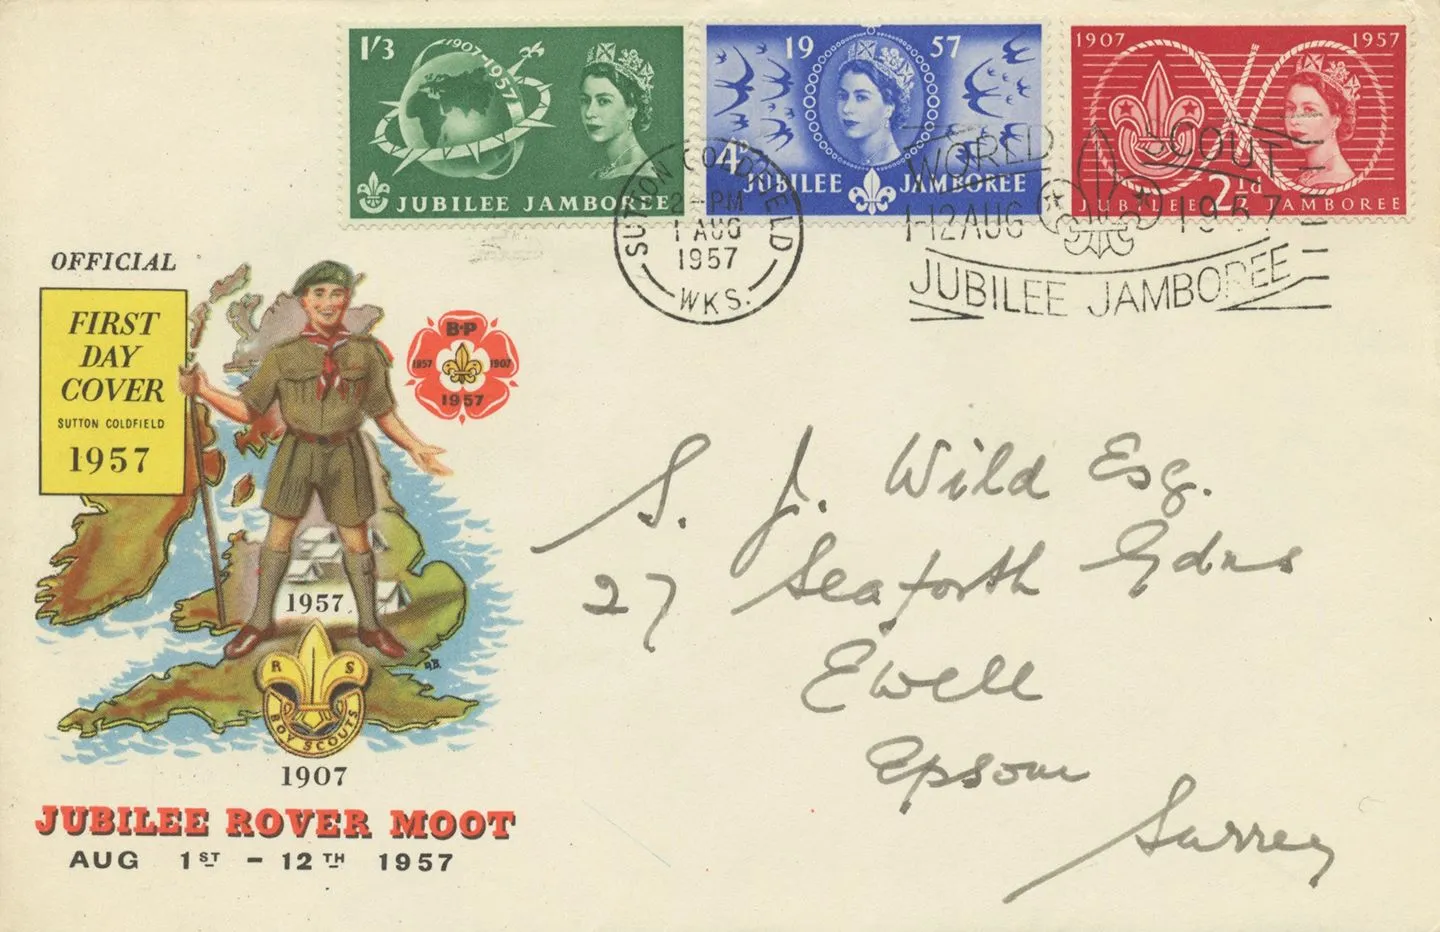 1'3
1907-1957
JUBILEE JAMBOREE
19 57
4D
JUBILEE JAMBOREE
1907 1957
JUBILEE 2½d JAMBOREE
SUTTON COLDFIELD
PM
1 AUG
1957
WKS.
WORLD SCOUT
1-12 AUG 1957
JUBILEE JAMBOREE
OFFICIAL
FIRST
DAY
COVER
SUTTON COLDFIELD
1957
B-P
1857 1907
1957
1957
R S
BOY SCOUTS
1907
JUBILEE ROVER MOOT
AUG 1ST - 12TH 1957
S. J. Wild Esq.
27 Seaforth Gdns
Ewell
Epsom
Surrey